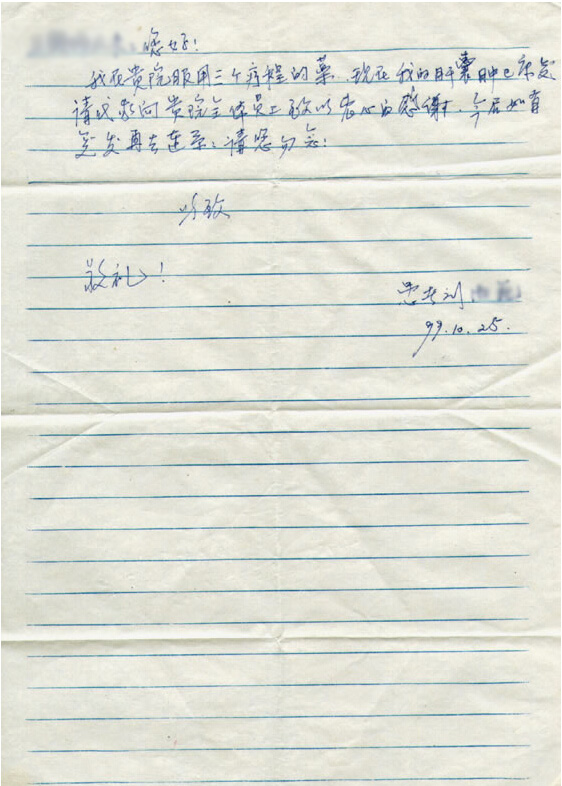 您好!
我在贵院服用三个疗程的药.现在我的肝囊肿已痊愈
请代我向贵院全体员工致以衷心的感谢.今后如有
复发再去连系:请您勿念:
此致
敬礼!
患者刘
99.10.25.